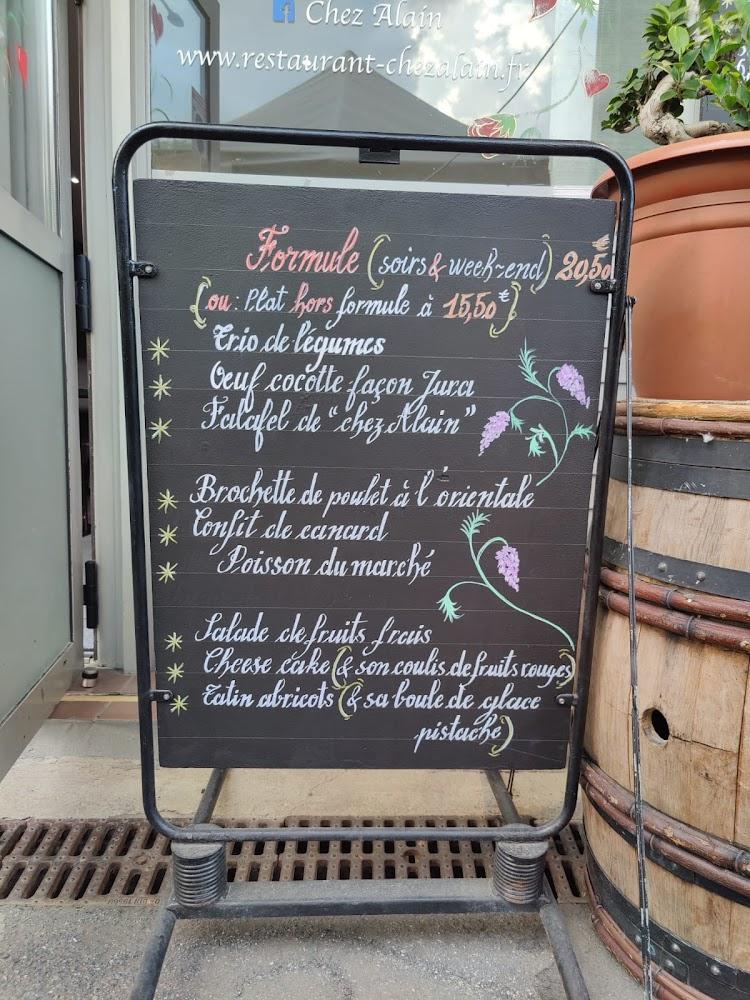 Chez Alain
www.restaurant-chezalain.fr
Formule (soirs & week-end) 20,50€
(ou : Plat hors formule à 15,50€)
Trio de légumes
Oeuf cocotte façon Jura
Falafel de "chez Alain"
Brochette de poulet à l'orientale
Confit de canard
Poisson du marché
Salade de fruits frais
Cheese cake (& son coulis de fruits rouges)
Tatin abricots (& sa boule de glace
pistache)